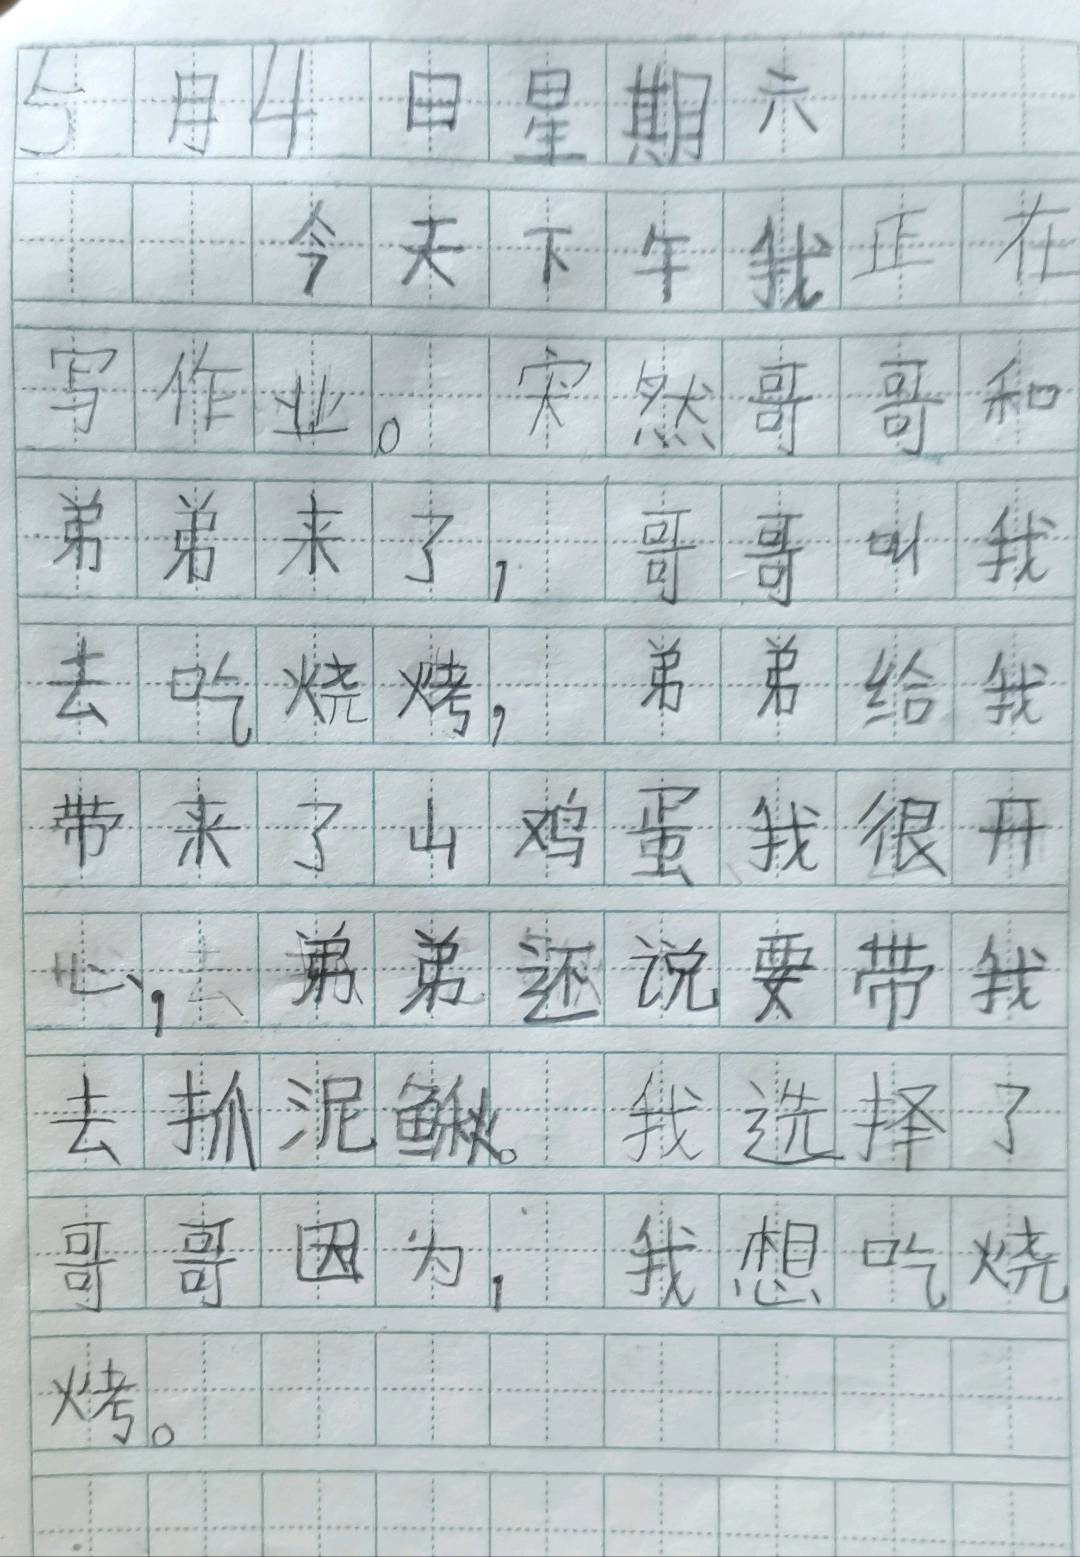 5月4日星期六
今天下午我正在
写作业。宊然哥哥和
弟弟来了,哥哥叫我
去吃烧烤,弟弟给我
带来了山鸡蛋我很开
心,弟弟还说要带我
去抓泥鳅。我选择了
哥哥因为,我想吃烧
烤。